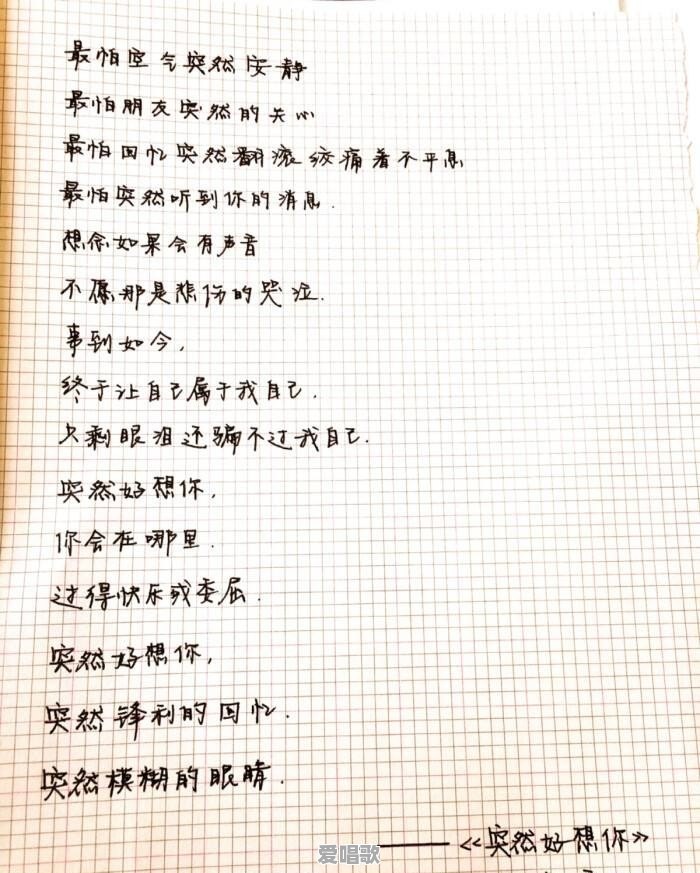 最怕空气突然安静
最怕朋友突然的关心
最怕回忆突然翻滚绞痛着不平息
最怕突然听到你的消息.
想念如果会有声音
不愿那是悲伤的哭泣.
事到如今,
终于让自己属于我自己.
只剩眼泪还骗不过我自己.
突然好想你,
你会在哪里.
过得快乐或委屈.
突然好想你,
突然锋利的回忆.
突然模糊的眼睛.
——《突然好想你》
爱唱歌